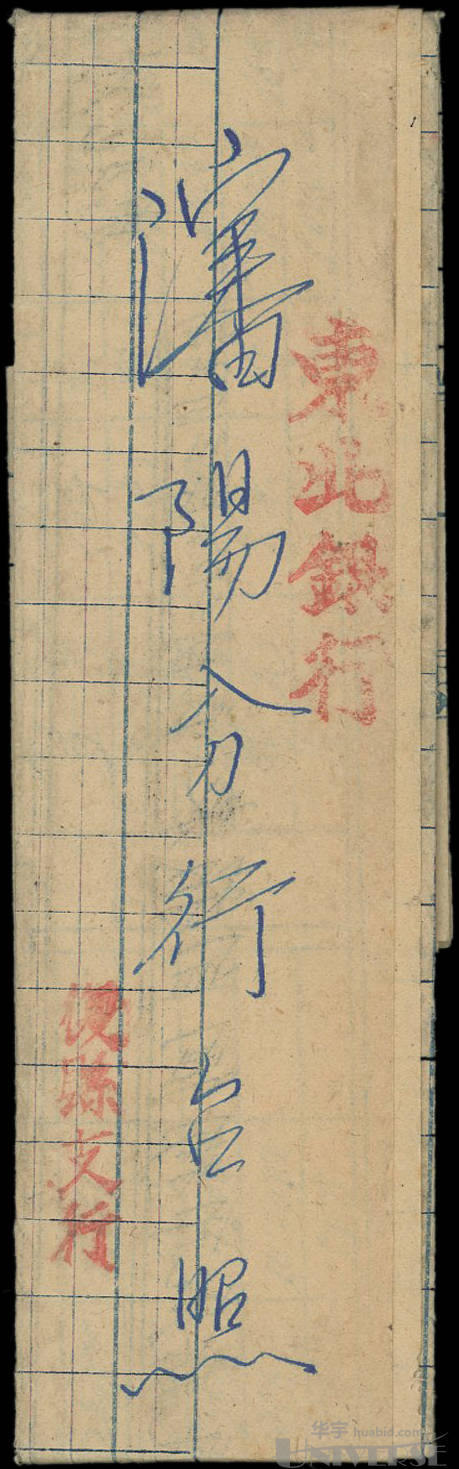 東北銀行
瀋陽分行台照
復縣支行
华宇 huabid.com
UNIVERSE